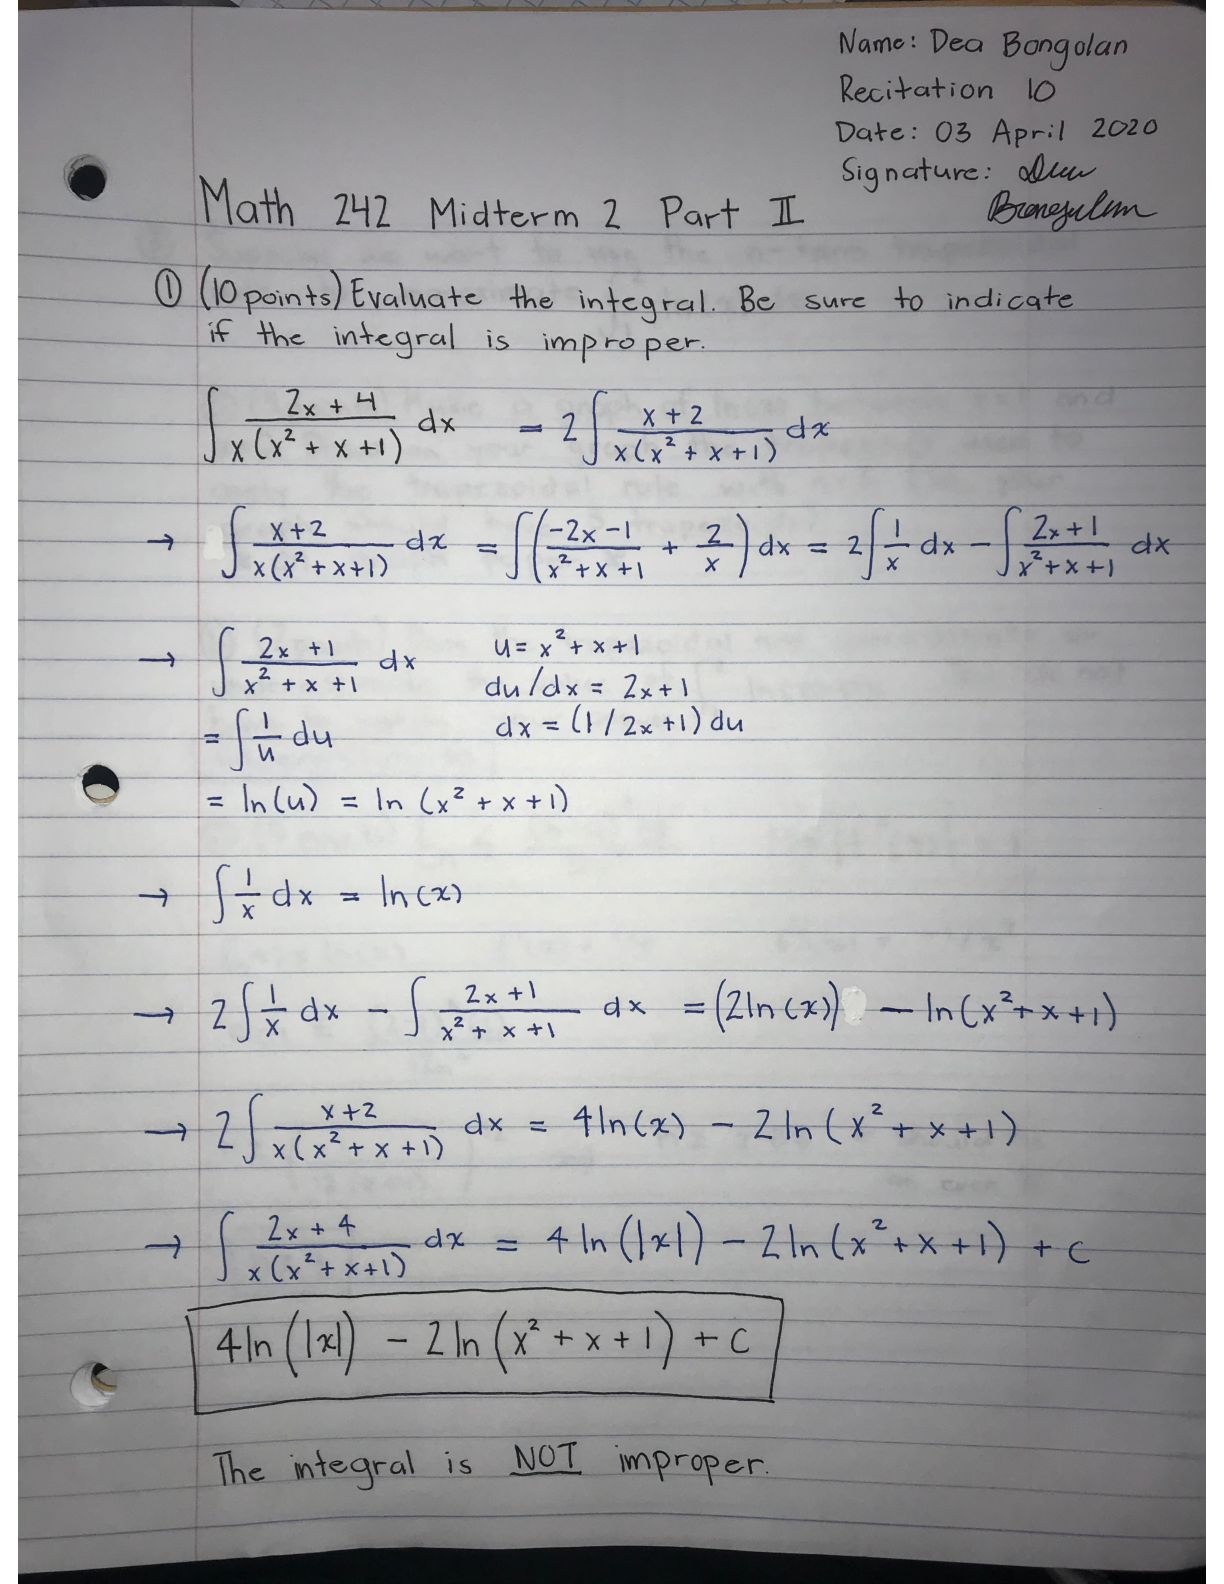 Name: Dea Bongolan
Recitation 10
Date: 03 April 2020
Signature:
Math 242 Midterm 2 Part II
① (10 points) Evaluate the integral. Be sure to indicate
if the integral is improper.
∫ (2x + 4)/(x(x² + x + 1)) dx = 2∫ (x + 2)/(x(x² + x + 1)) dx
→ ∫ (x + 2)/(x(x² + x + 1)) dx = ∫((-2x - 1)/(x² + x + 1) + 2/x) dx = 2∫ 1/x dx - ∫ (2x + 1)/(x² + x + 1) dx
→ ∫ (2x + 1)/(x² + x + 1) dx u = x² + x + 1
du/dx = 2x + 1
= ∫ 1/u du dx = (1/2x + 1) du
= ln(u) = ln(x² + x + 1)
→ ∫ 1/x dx = ln(x)
→ 2∫ 1/x dx - ∫ (2x + 1)/(x² + x + 1) dx = (2ln(x)) - ln(x² + x + 1)
→ 2∫ (x + 2)/(x(x² + x + 1)) dx = 4ln(x) - 2ln(x² + x + 1)
→ ∫ (2x + 4)/(x(x² + x + 1)) dx = 4ln(|x|) - 2ln(x² + x + 1) + c
4ln(|x|) - 2ln(x² + x + 1) + c
The integral is NOT improper.